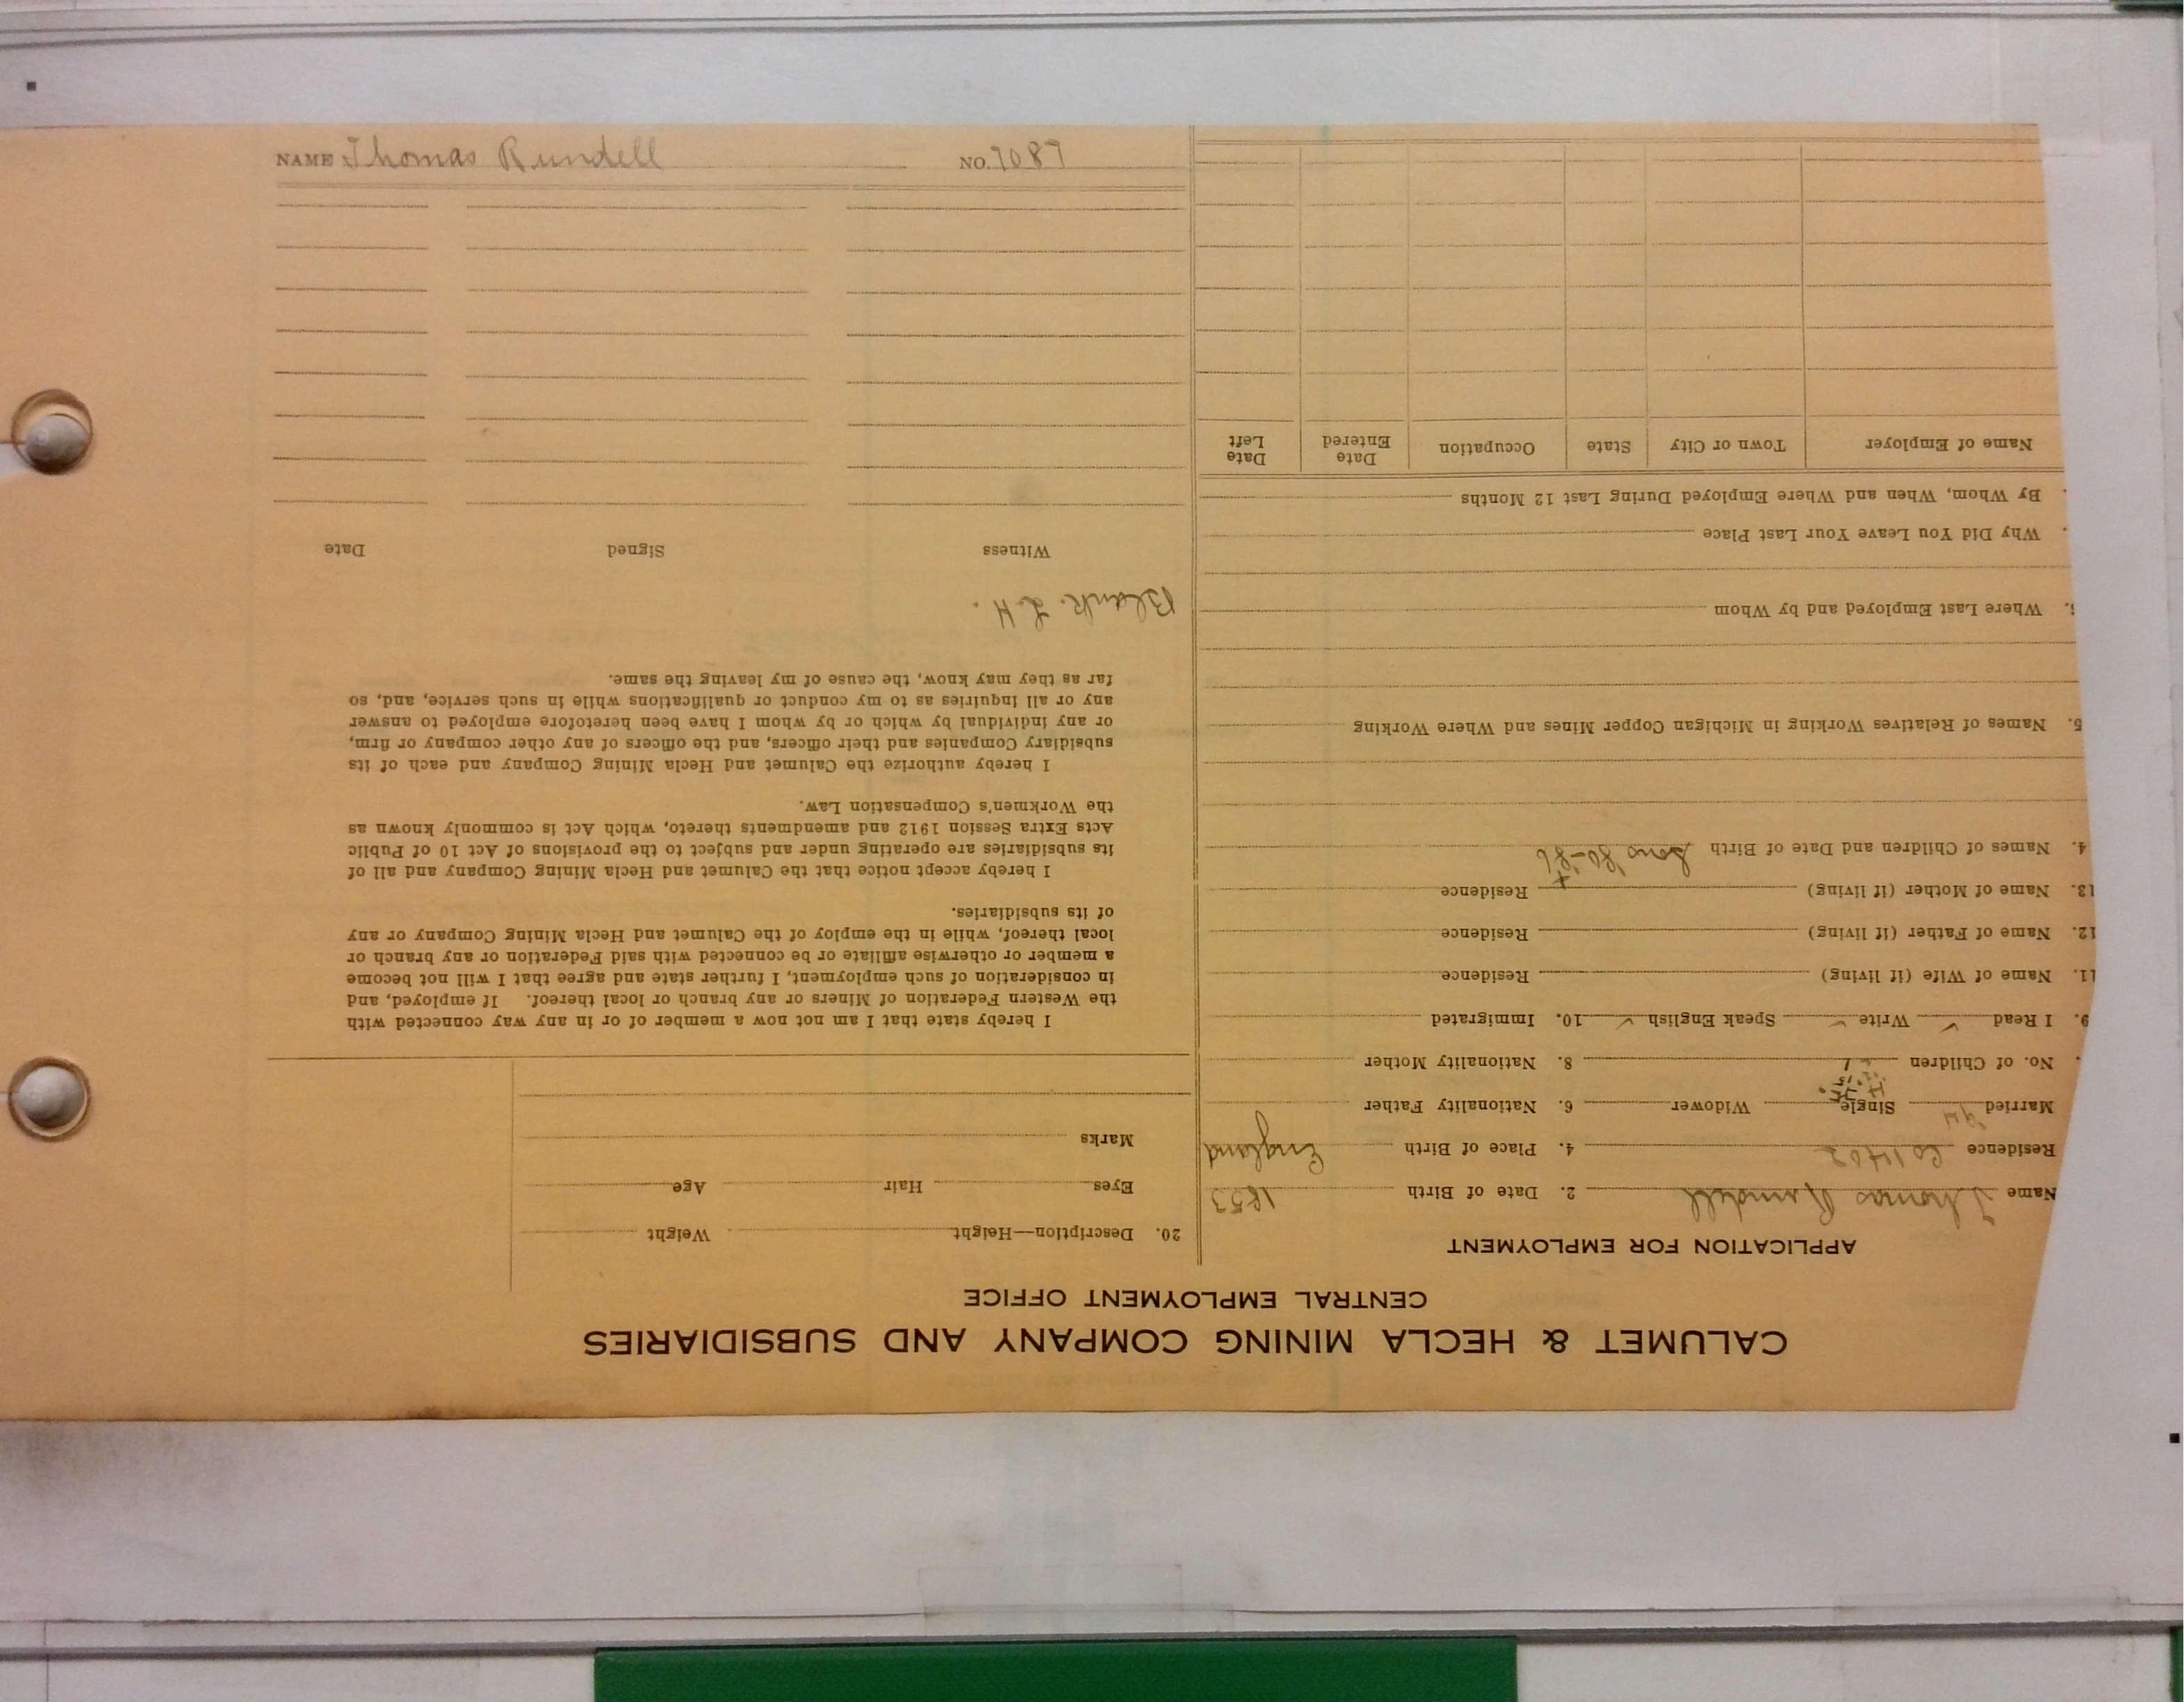 CALUMET & HECLA MINING COMPANY AND SUBSIDIARIES
CENTRAL EMPLOYMENT OFFICE
APPLICATION FOR EMPLOYMENT
Name Thomas Rundell 2. Date of Birth 1853
Residence Co 1402 4. Place of Birth England
Married Single Widower 6. Nationality Father
No. of Children 8. Nationality Mother
9. I Read ✓ Write ✓ Speak English ✓ 10. Immigrated
11. Name of Wife (if living) Residence
12. Name of Father (if living) Residence
13. Name of Mother (if living) Residence
4. Names of Children and Date of Birth Sons '80-86
5. Names of Relatives Working in Michigan Copper Mines and Where Working
Where Last Employed and by Whom
Why Did You Leave Your Last Place
By Whom, When and Where Employed During Last 12 Months
Name of Employer Town or City State Occupation Date Entered Date Left
20. Description—Height Weight
Eyes Hair Age
Marks
I hereby state that I am not now a member of or in any way connected with
the Western Federation of Miners or any branch or local thereof. If employed, and
in consideration of such employment, I further state and agree that I will not become
a member or otherwise affiliate or be connected with said Federation or any branch or
local thereof, while in the employ of the Calumet and Hecla Mining Company or any
of its subsidiaries.
I hereby accept notice that the Calumet and Hecla Mining Company and all of
its subsidiaries are operating under and subject to the provisions of Act 10 of Public
Acts Extra Session 1912 and amendments thereto, which Act is commonly known as
the Workmen's Compensation Law.
I hereby authorize the Calumet and Hecla Mining Company and each of its
subsidiary Companies and their officers, and the officers of any other company or firm,
or any individual by which or by whom I have been heretofore employed to answer
any or all inquiries as to my conduct or qualifications while in such service, and, so
far as they may know, the cause of my leaving the same.
Blank. L.H.
Witness Signed Date
NAME Thomas Rundell NO. 7087